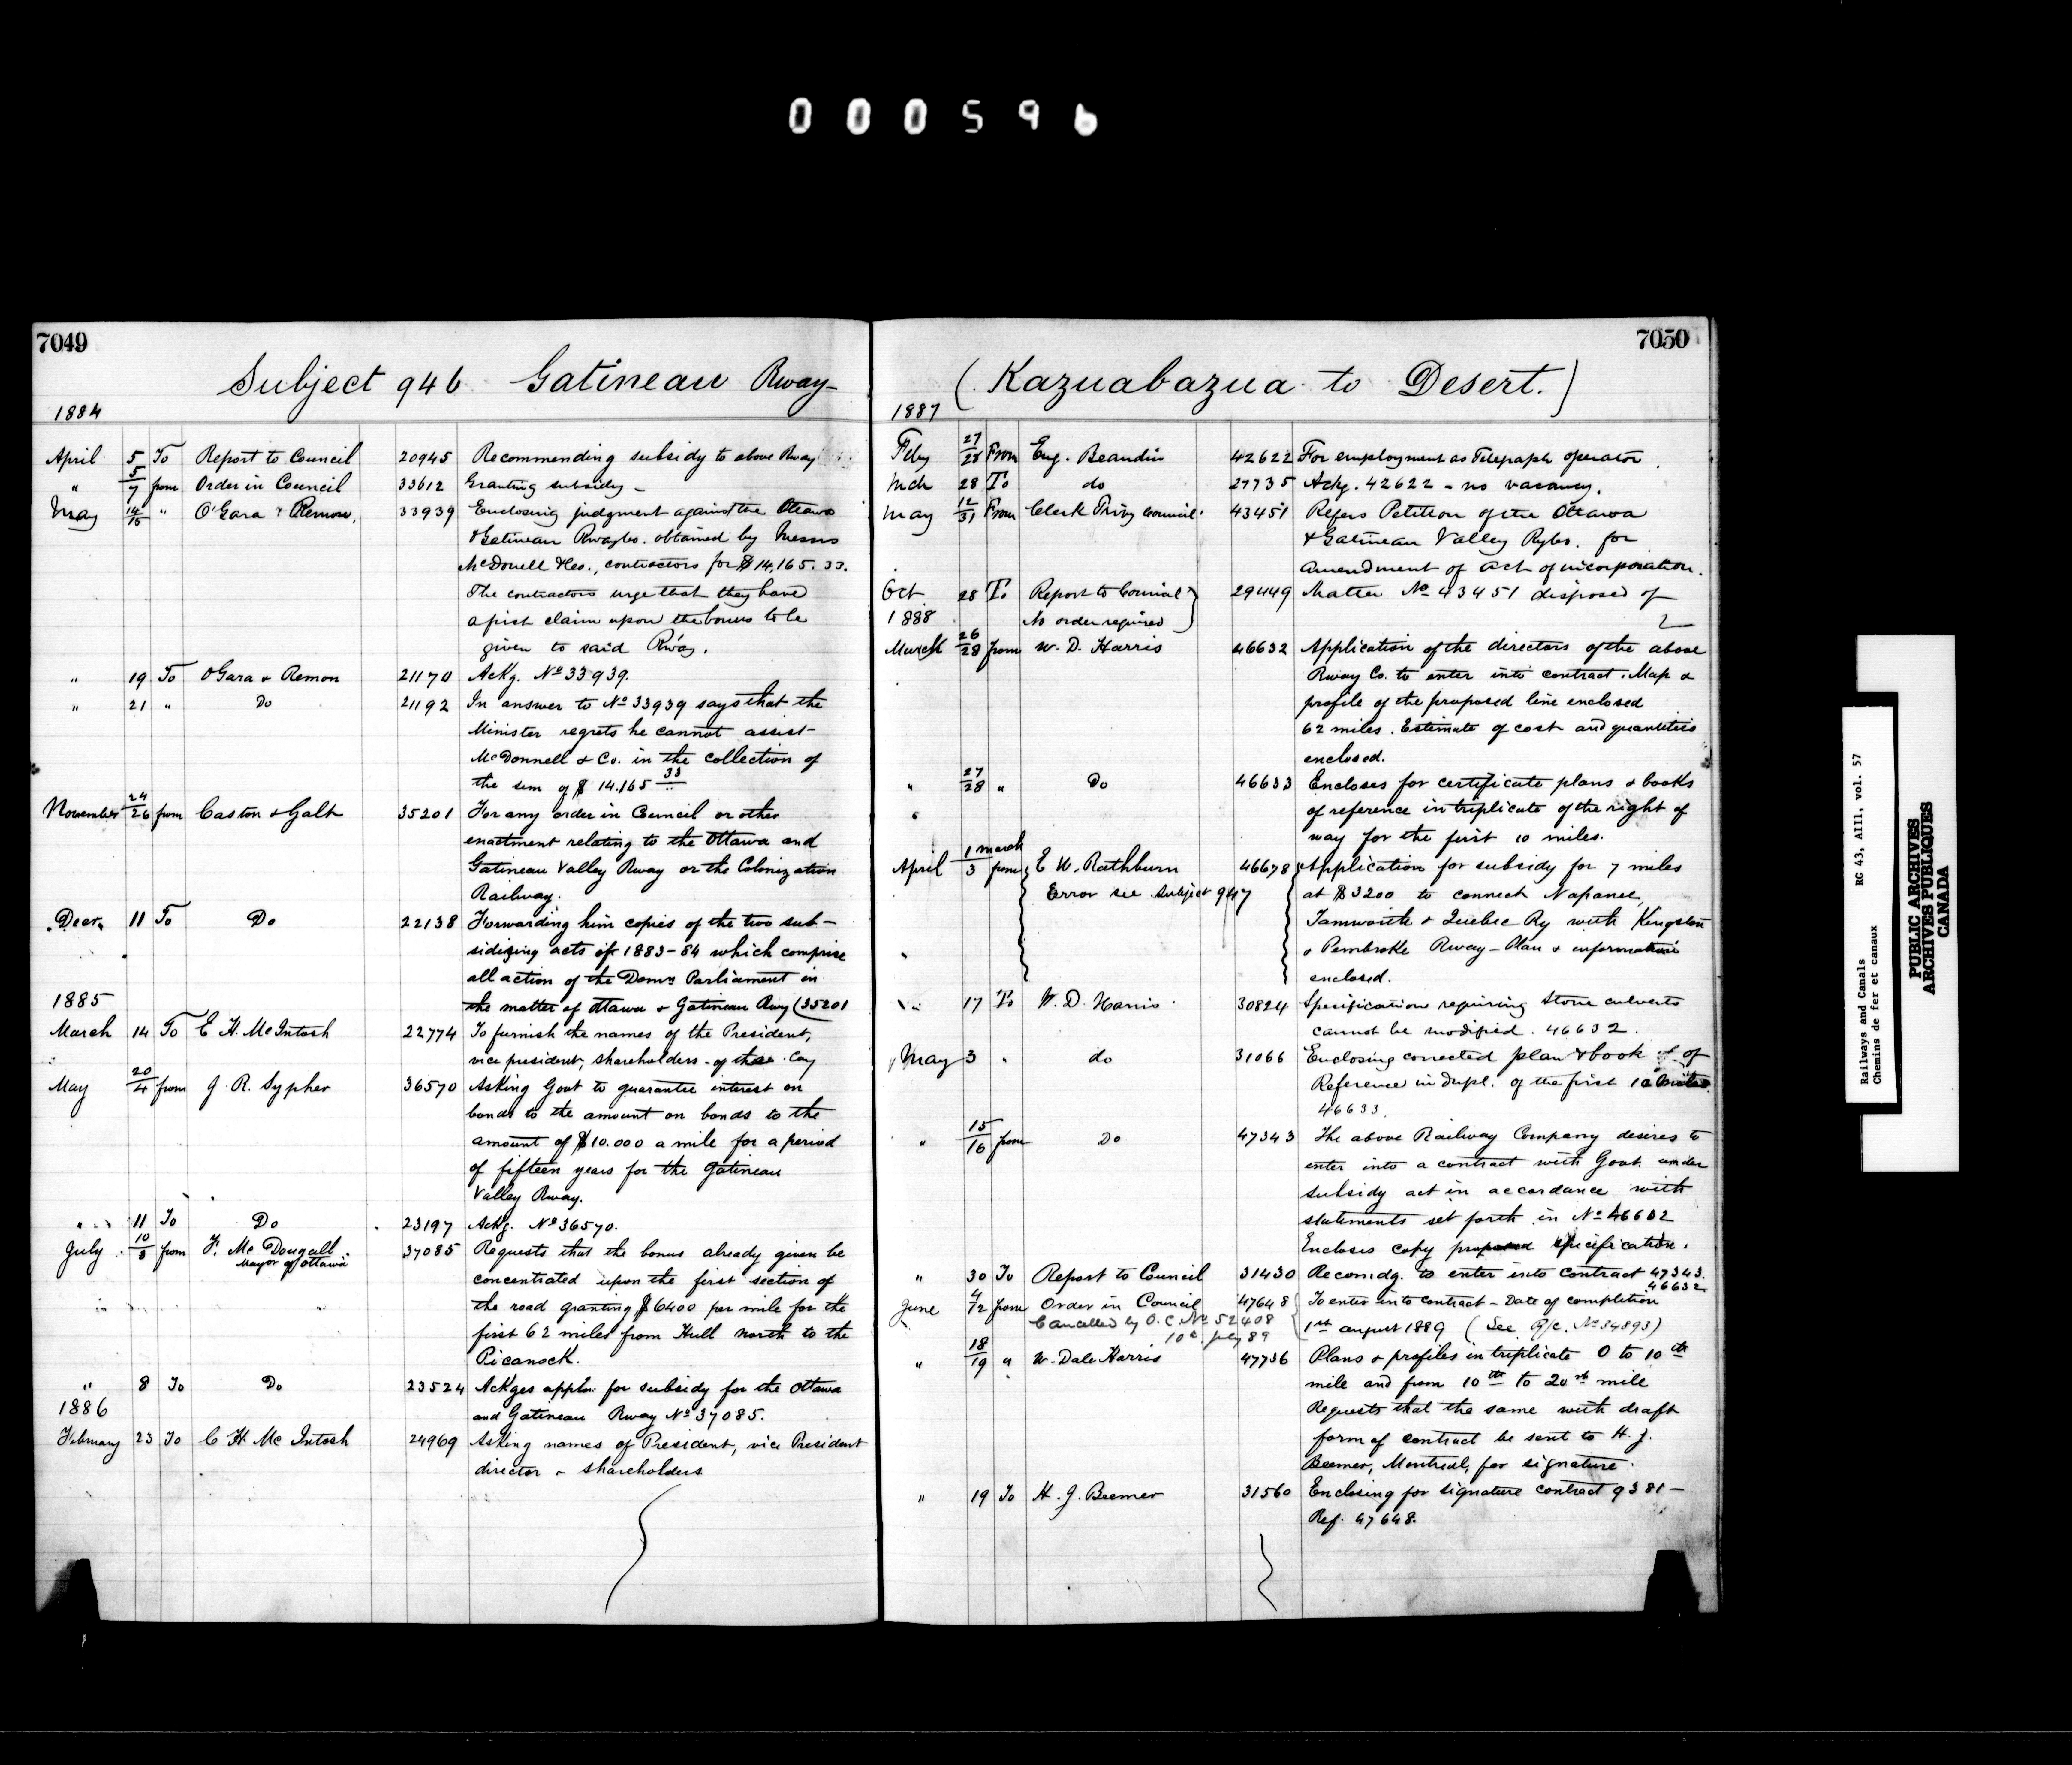 000596
7049
Subject 946 Gatineau Rway-
1884
April 5 To Report to Council 20945 Recommending subsidy to above Rway
" 5/7 from Order in Council 33612 Granting subsidy -
May 14/15 " O'Gara & Remon, 33939 Enclosing judgment against the Ottawa
& Gatineau Rwayco. obtained by Messrs
McDonell &Co., contractors for $14,165.33.
The contractors urge that they have
a first claim upon the bonus to be
given to said Rway.
" 19 To O'Gara & Remon 21170 Ackg. No 33939.
" 21 " Do 21192 In answer to No 33939 says that the
Minister regrets he cannot assist-
McDonnell & Co. in the collection of
the sum of $14.165 33
November 24/26 from Caston & Galt 35201 For any order in Council or other
enactment relating to the Ottawa and
Gatineau Valley Rway or the Colonization
Railway.
Decr. 11 To Do 22138 Forwarding him copies of the two sub-
sidizing acts of 1883-84 which comprise
all action of the Domn Parliament in
1885
the matter of Ottawa & Gatineau Rwy (35201
March 14 To C H. McIntosh 22774 To furnish the names of the President,
vice president, shareholders of the Coy
May 20/4 from J. R. Sypher 36570 Asking Govt to guarantee interest on
bonds to the amount on bonds to the
amount of $10.000 a mile for a period
of fifteen years for the Gatineau
Valley Rway.
" 11 To Do 23197 Ackg. No 36570.
July 10/8 from F. McDougall 37085 Requests that the bonus already given be
Mayor of Ottawa
concentrated upon the first section of
the road granting $6400 per mile for the
first 62 miles from Hull north to the
Picanock.
" 8 To Do 23524 Ackges appln. for subsidy for the Ottawa
1886
and Gatineau Rway No 37085.
February 23 To C H. McIntosh 24969 Asking names of President, vice President
director & shareholders
7050
(Kazuabazua to Desert.)
1887
Feby 27/28 From Eug. Beaudin 42622 For employment as Telegraph operator
Mch 28 To do 27735 Ackg. 42622 - no vacancy.
May 12/31 From Clerk Privy Council 43451 Refers Petition of the Ottawa
& Gatineau Valley Ryco. for
amendment of act of incorporation.
Oct 28 To Report to Council 29449 Matter No 43451 disposed of
1888 No order required
March 26/28 from W. D. Harris 46632 Application of the directors of the above
Rway Co. to enter into contract. Map &
profile of the proposed line enclosed
62 miles. Estimate of cost and quantities
enclosed.
" 27/28 " Do 46633 Encloses for certificate plans & books
of reference in triplicate of the right of
way for the first 10 miles.
1 March
April 3 from E W. Rathburn 46678 Application for subsidy for 7 miles
Error see Subject 947 at $3200 to connect Napanee,
Tamworth & Quebec Ry with Kingston
& Pembroke Rway - Plan & information
enclosed.
" 17 To W. D. Harris 30824 Specification requiring stone culverts
cannot be modified. 46632.
May 3 " do 31066 Enclosing corrected plan & book of
Reference in dupl. of the first 10 miles
46633.
" 15/16 from Do 47343 The above Railway Company desires to
enter into a contract with Govt. under
subsidy act in accordance with
statements set forth in No 46632
Encloses copy proposed specification.
" 30 To Report to Council 31430 Recomdg. to enter into contract 47343.
46632
June 4/12 from Order in Council 47648 To enter into contract - Date of completion
Cancelled by O.C. No 52408 1st august 1889 (See R/c. No 34893)
10th July 89
" 18/19 " W. Dale Harris 47736 Plans & profiles in triplicate 0 to 10th
mile and from 10th to 20th mile
Requests that the same with draft
form of contract be sent to H. J.
Beemer, Montreal, for signature.
" 19 To H. J. Beemer 31560 Enclosing for signature contract 9381 -
Ref. 47648.
Railways and Canals RG 43, AIII, vol. 57
Chemins de fer et canaux
PUBLIC ARCHIVES
ARCHIVES PUBLIQUES
CANADA